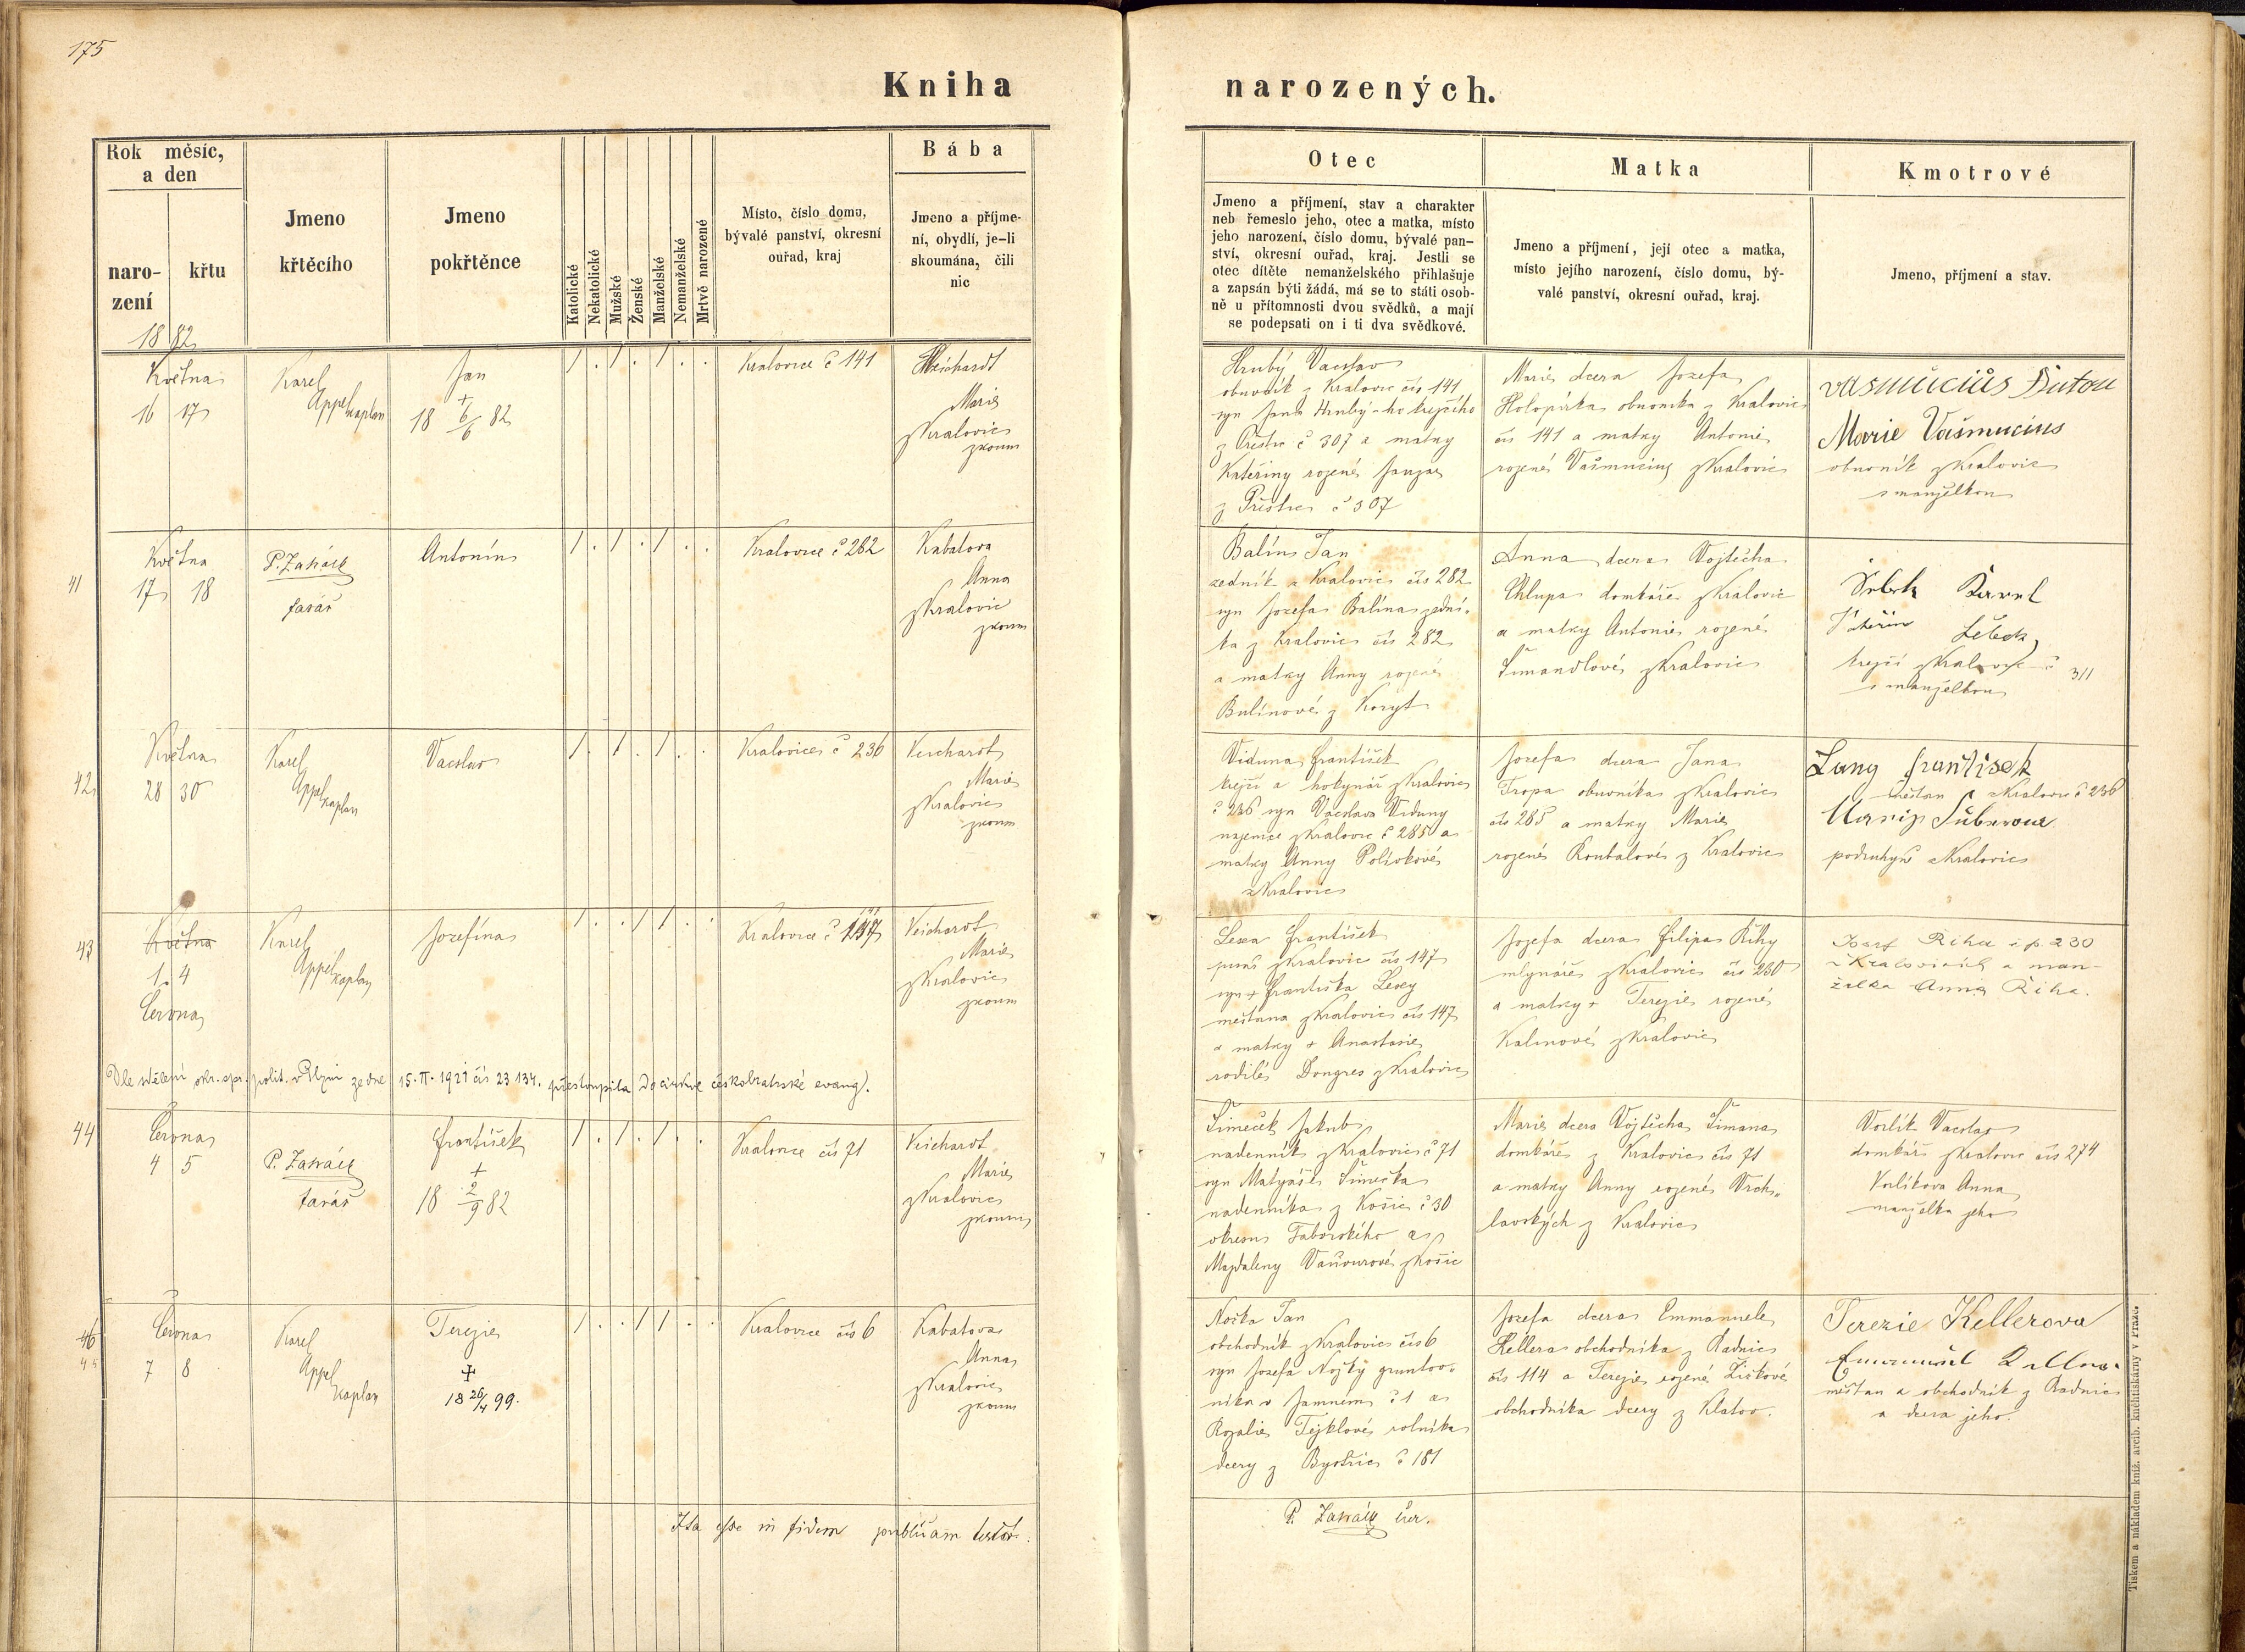 175
Kniha narozených.
Rok měsíc, a den
narození
křtu
Jmeno křtěcího
Jmeno pokřtěnce
Katolické
Nekatolické
Mužské
Ženské
Manželské
Nemanželské
Mrtvě narozené
Místo, číslo domu, bývalé panství, okresní ouřad, kraj
Bába
Jmeno a příjmení, obydlí, je-li skoumána, čili nic
Otec
Jmeno a příjmení, stav a charakter
neb řemeslo jeho, otec a matka, místo
jeho narození, číslo domu, bývalé pan-
ství, okresní ouřad, kraj. Jestli se
otec dítěte nemanželského přihlašuje
a zapsán býti žádá, má se to státi osob-
ně u přítomnosti dvou svědků, a mají
se podepsati on i ti dva svědkové.
Matka
Jmeno a příjmení, její otec a matka,
místo jejího narození, číslo domu, bý-
valé panství, okresní ouřad, kraj.
Kmotrové
Jmeno, příjmení a stav.
1882
Května
16 17
Karel
Appel kaplan
Jan
+
18 6/6 82
1 . 1 . 1 . .
Kralovice č 141
Marie
z Kralovic
zkoum
Hrubý Vacslav
obuvník z Kralovic čís 141
syn Jana Hrubý-ho krejčího
z Přeštic č 307 a matky
Kateřiny rozené
z Přeštic č 307
Marie dcera Josefa
obuvníka z Kralovic
čís 141 a matky Antonie
rozené Vašmucius z Kralovic
Vasmucius Anton
Marie Vašmucius
obuvník z Kralovic
s manželkou
41
Května
17 18
P. Zahálka
farář
Antonín
1 . 1 . 1 . .
Kralovice č 282
Kabatova
Anna
z Kralovic
zkoum
Balín Jan
zedník z Kralovic čís 282
syn Josefa Balína zední-
ka z Kralovic čís 282
a matky Anny rozené
Bulínové z Koryt
Anna dcera Vojtěcha
Chlupa domkáře z Kralovic
a matky Antonie rozené
Šimandlové z Kralovic
Karel
krejčí z Kralovic č 311
s manželkou
42
Května
28 30
Karel
Appel kaplan
Vacslav
1 . 1 . 1 . .
Kralovice č 236
Veichardt
Marie
z Kralovic
zkoum
Viduna František
krejčí a hokynář z Kralovic
č 236 syn Václava Viduny
najemce z Kralovic č 285 a
matky Anny Polívkové
z Kralovic
Josefa dcera Jana
Tropa obuvníka z Kralovic
čís 285 a matky Marie
rozené Roubalové z Kralovic
Lang František
měšťan z Kralovic č 236
Marie
podruhyně z Kralovic
43
Května
1. 4
Června
Karel
Appel kaplan
Josefína
1 . . 1 1 . .
Kralovice č 147
Veichardt
Marie
z Kralovic
zkoum
Lexa František
z Kralovic čís 147
syn + Františka Lexy
měšťana z Kralovic čís 147
a matky + Anastasie
rodilé Dongres z Kralovic
Josefa dcera Filipa Říhy
mlynáře z Kralovic čís 230
a matky + Terezie rozené
Kalinové z Kralovic
Josef Říha čp 230
v Kralovicích a man-
želka Anna Říha.
Dle sdělení okr. spr. polit. v Plzni ze dne 15.II.1921 čís 23 134. přestoupila do církve českobratrské evang.
44
Června
4 5
P. Zahálka
farář
František
+
18 2/9 82
1 . 1 . 1 . .
Kralovice čís 71
Veichardt
Marie
z Kralovic
zkoum
Šimeček Jakub
nadenník z Kralovic č 71
syn Matyáše Šimečka
nadenníka z Košic č 30
okresu Taborského a
Magdaleny Vaňourové z Košic
Marie dcera Vojtěcha Šimana
domkáře z Kralovic čís 71
a matky Anny rozené Vrch-
lavských z Kralovic
Vorlík Vacslav
domkář z Kralovic čís 274
Vorlíkova Anna
manželka jeho
46
45
Června
7 8
Karel
Appel
kaplan
Terezie
+
18 26/4 99.
1 . . 1 1 . .
Kralovice čís 6
Kabatova
Anna
z Kralovic
zkoum
Jan
obchodník z Kralovic čís 6
syn Josefa gruntov-
níka v Jamném č 1 a
Rozalie Tejklové rolníka
dcery z Bystřic č 181
Josefa dcera Emmanuele
Kellera obchodníka z Radnic
čís 114 a Terezie rozené Ziskové
obchodníka dcery z Klatov.
Terezie Kellerova
Emanuel Keller
měšťan a obchodník z Radnic
a dcera jeho.
Ita esse in fidem publicam testor.
P. Zahálka
Tiskem a nákladem kníž. arcib. knihtiskárny v Praze.